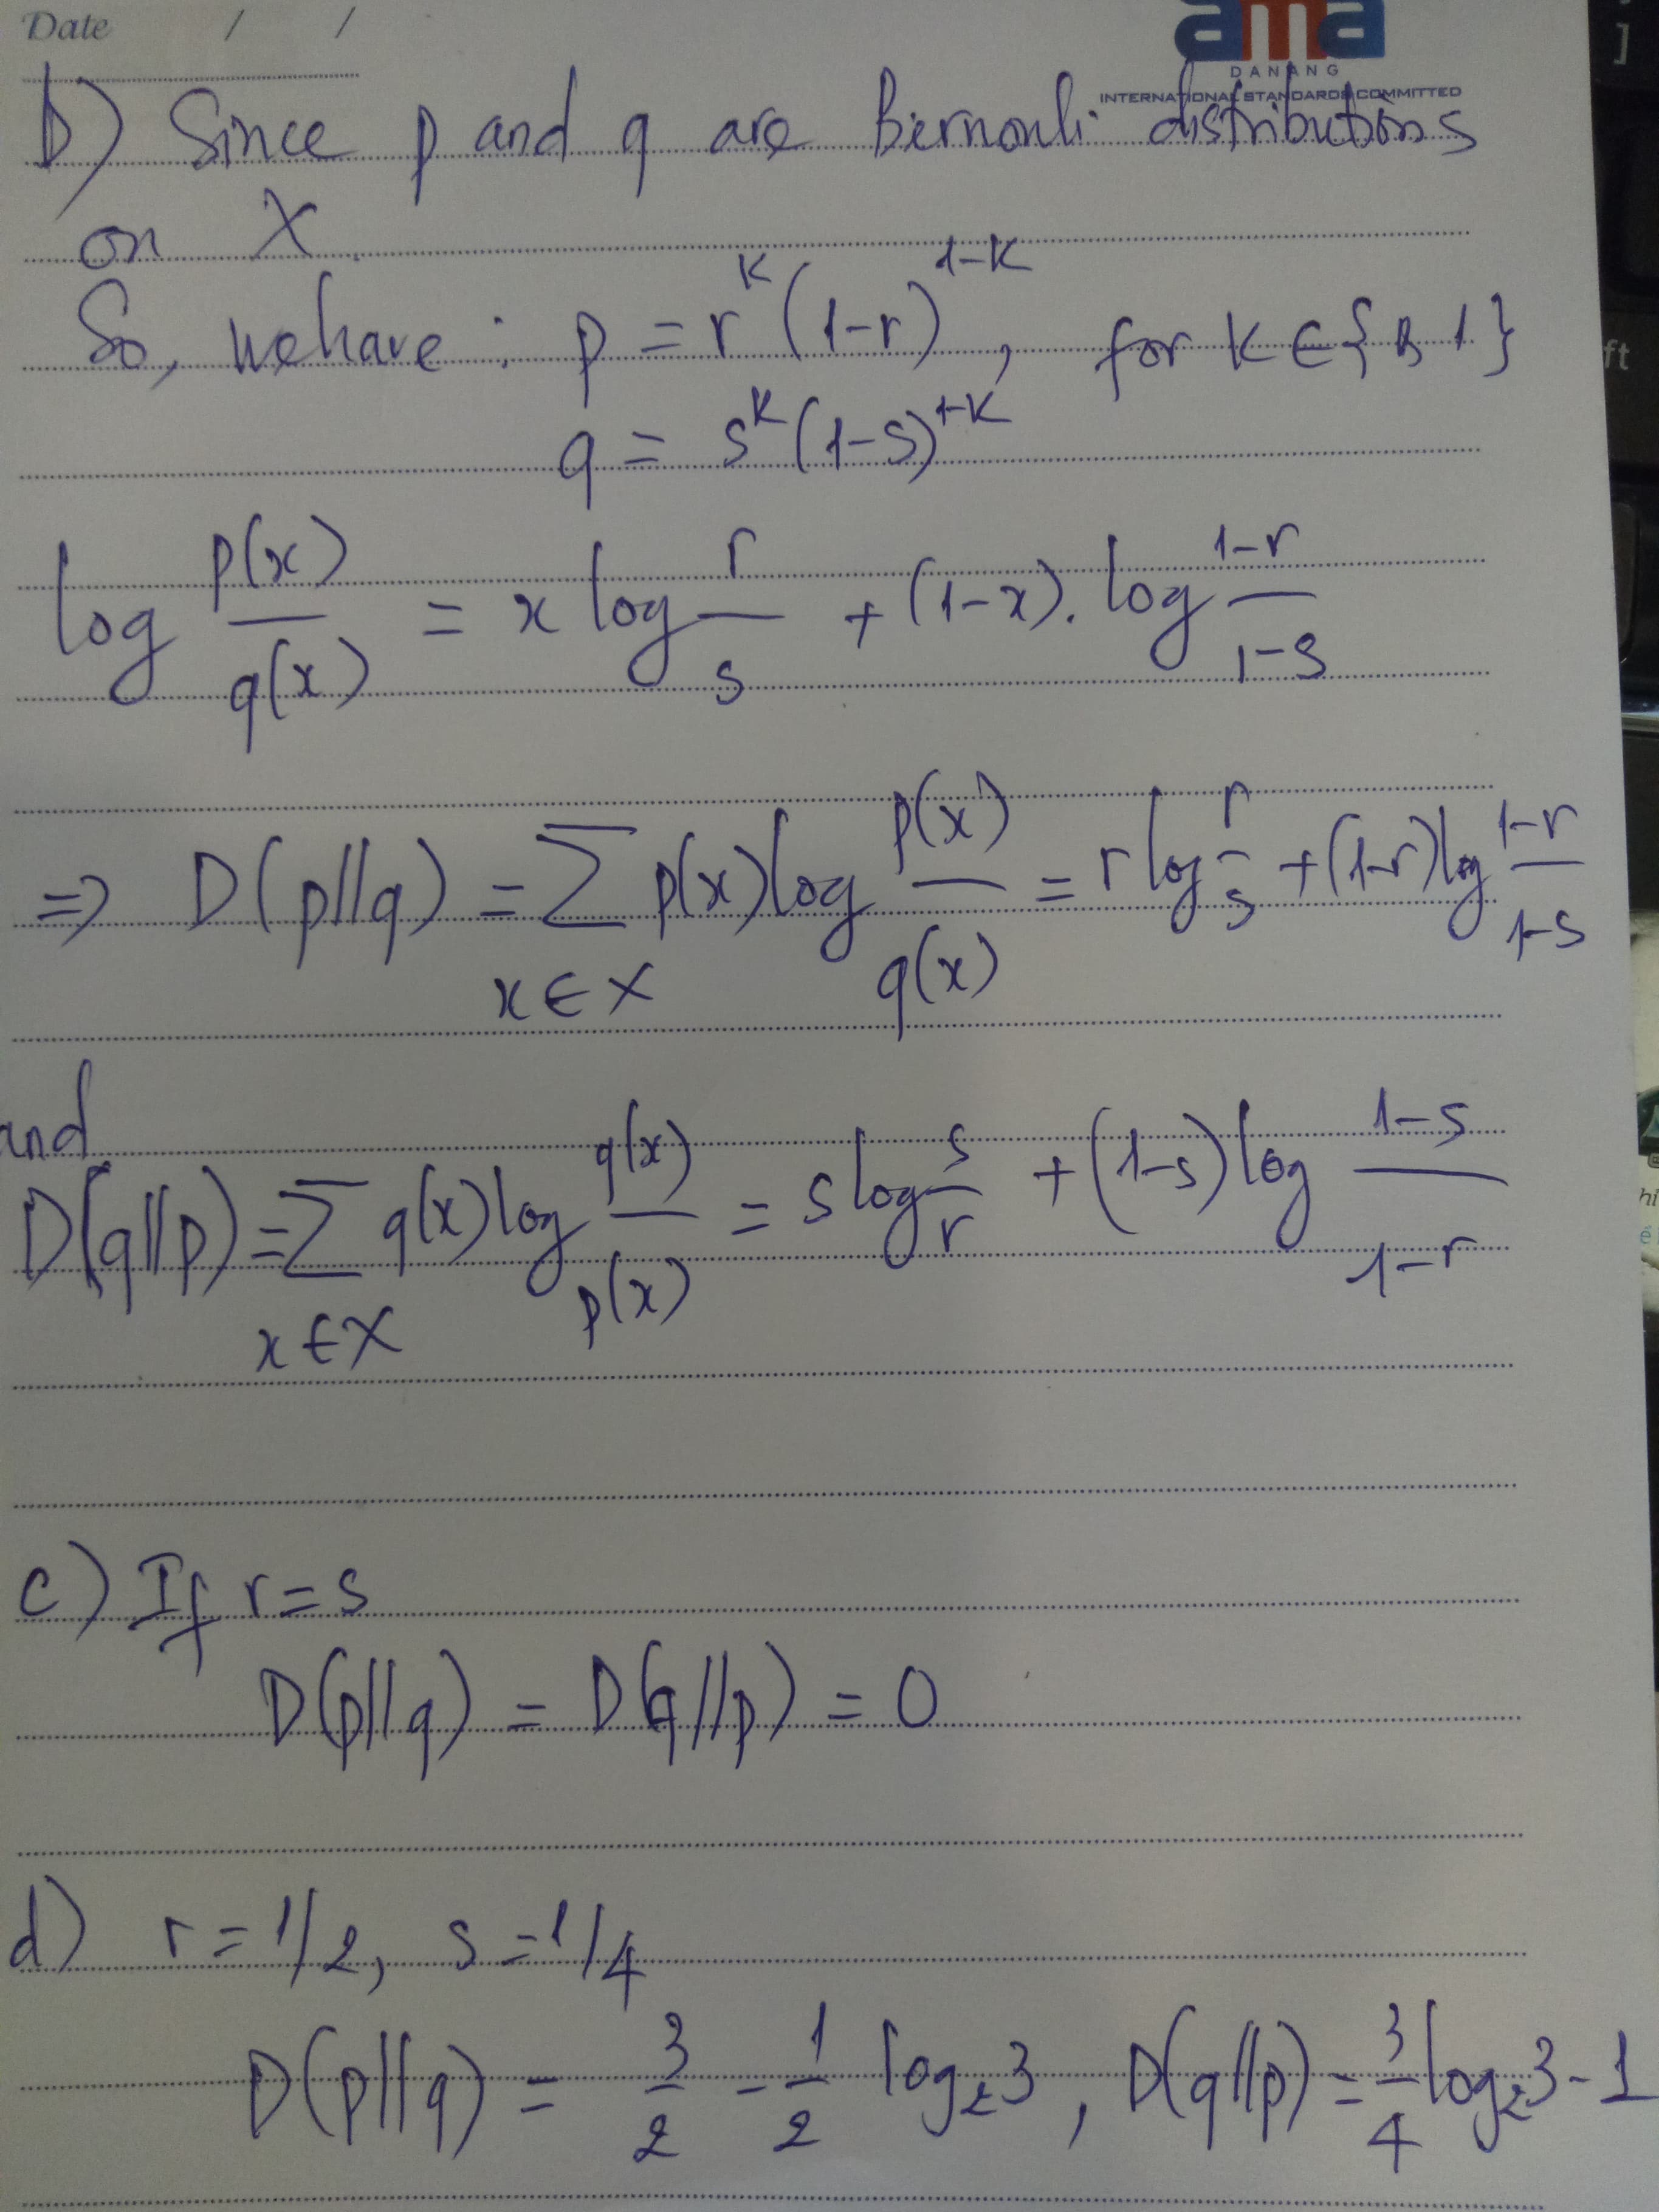 Date / /
ama
DANANG
INTERNATIONAL STANDARDS COMMITTED
b) Since p and q are Bernouli distributions
on X
So, we have : p = r^k (1-r)^{1-k}, for k ∈ {0, 1}
q = s^k (1-s)^{1-k}
log p(x)/q(x) = x log r/s + (1-x). log (1-r)/(1-s)
=> D(p||q) = Σ_{x∈X} p(x) log p(x)/q(x) = r log r/s + (1-r) log (1-r)/(1-s)
and
D(q||p) = Σ_{x∈X} q(x) log q(x)/p(x) = s log s/r + (1-s) log (1-s)/(1-r)
c) If r = s
D(p||q) = D(q||p) = 0
d) r = 1/2, s = 1/4
D(p||q) = 3/2 - 1/2 log₂3, D(q||p) = 3/4 log₂3 - 1
]
ft